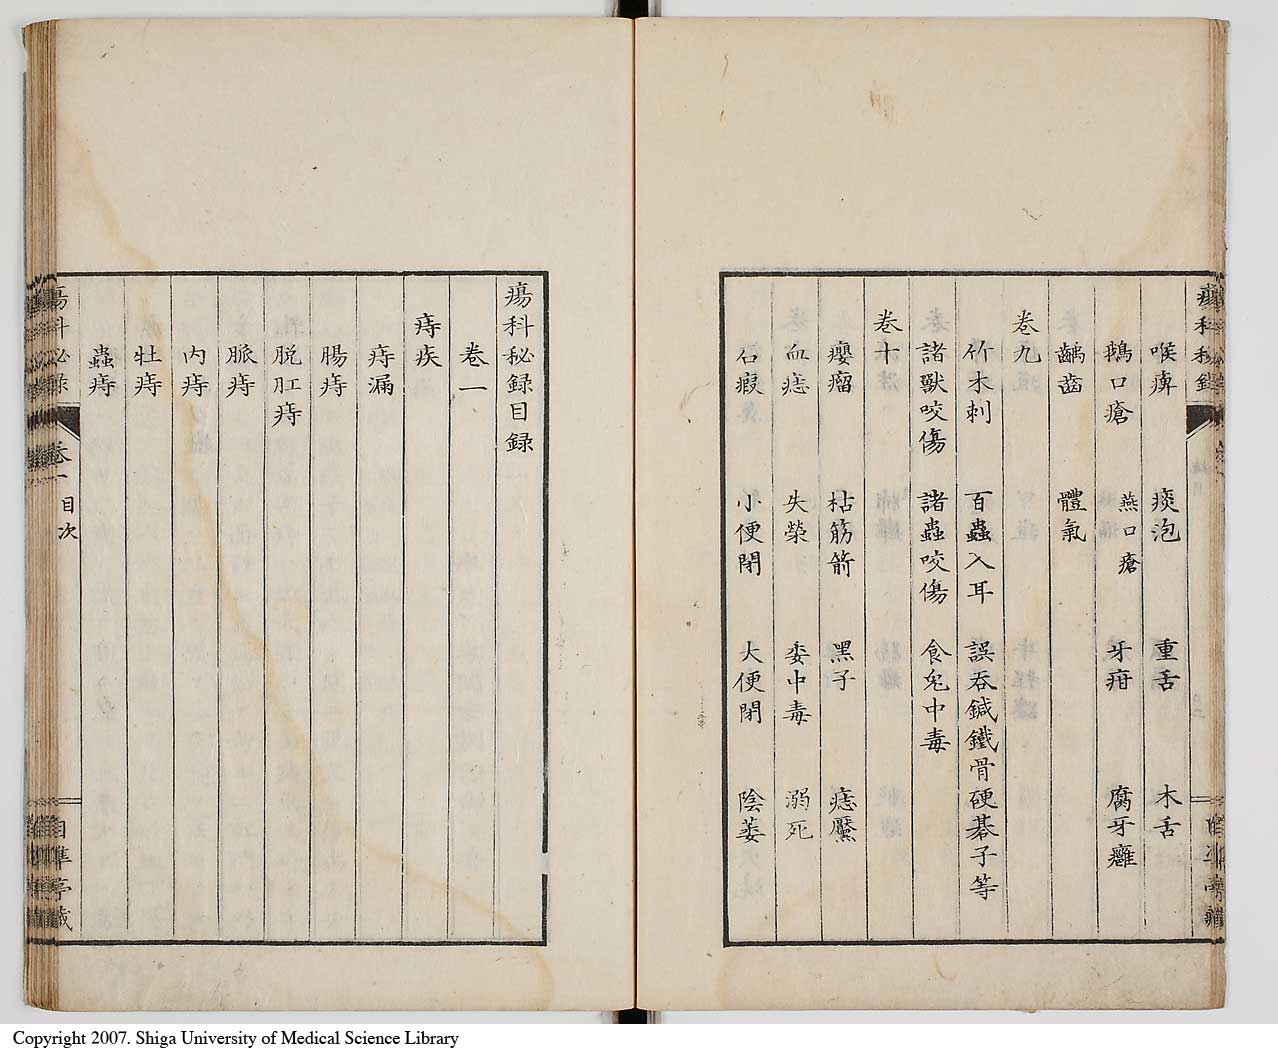 喉痺 痰泡 重舌 木舌
鵝口瘡 燕口瘡 牙疳 腐牙癰
齲齒 體氣
卷九
竹木刺 百蟲入耳 誤吞鍼鐵骨硬碁子等
諸獸咬傷 諸蟲咬傷 食兔中毒
卷十
癭瘤 枯筋箭 黑子 痣黶
血痣 失榮 委中毒 溺死
石瘕 小便閉 大便閉 陰萎
瘍科秘録目録
卷一
痔疾
痔漏
腸痔
脱肛痔
脈痔
内痔
牡痔
蟲痔
瘍科秘録
卷一 目次
自準亭藏
Copyright 2007. Shiga University of Medical Science Library